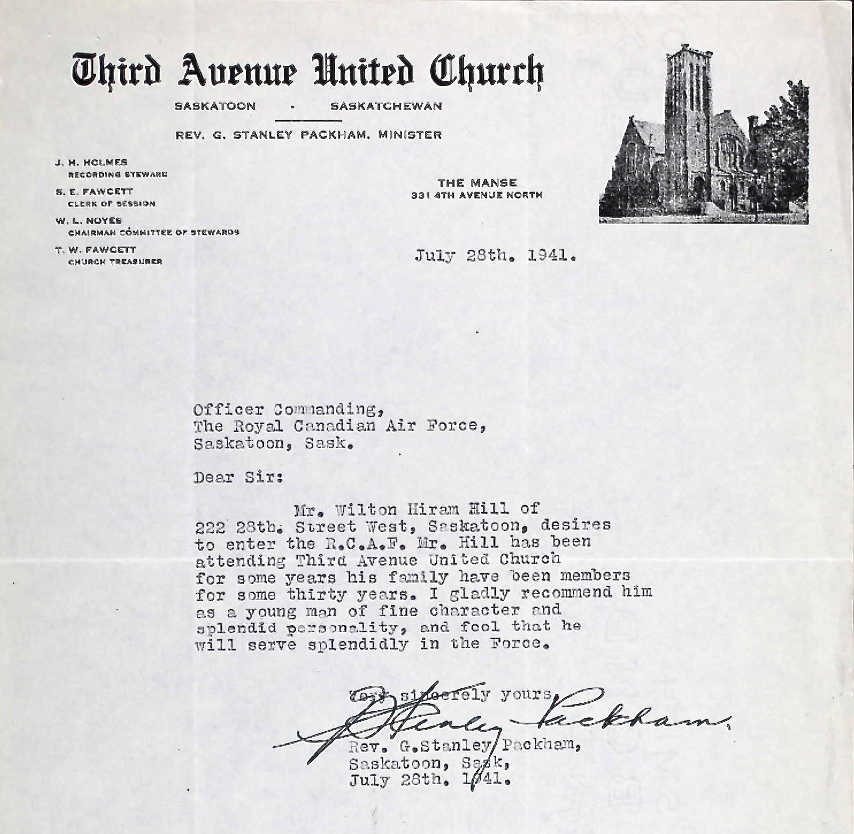 Third Avenue United Church
SASKATOON - SASKATCHEWAN
REV. G. STANLEY PACKHAM, MINISTER
J. H. HOLMES
RECORDING STEWARD
S. E. FAWCETT
CLERK OF SESSION
W. L. NOYES
CHAIRMAN COMMITTEE OF STEWARDS
T. W. FAWCETT
CHURCH TREASURER
THE MANSE
331 4TH AVENUE NORTH
July 28th. 1941.
Officer Commanding,
The Royal Canadian Air Force,
Saskatoon, Sask.
Dear Sir:
Mr. Wilton Hiram Hill of
222 28th. Street West, Saskatoon, desires
to enter the R.C.A.F. Mr. Hill has been
attending Third Avenue United Church
for some years his family have been members
for some thirty years. I gladly recommend him
as a young man of fine character and
splendid personality, and feel that he
will serve splendidly in the Force.
Very sincerely yours,
G Stanley Packham.
Rev. G.Stanley Packham,
Saskatoon, Sask,
July 28th. 1941.